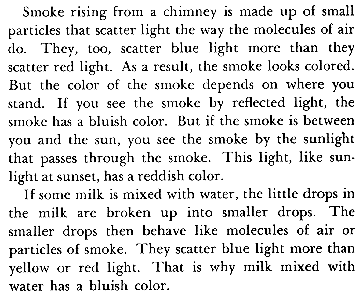 Smoke rising from a chimney is made up of small
particles that scatter light the way the molecules of air
do. They, too, scatter blue light more than they
scatter red light. As a result, the smoke looks colored.
But the color of the smoke depends on where you
stand. If you see the smoke by reflected light, the
smoke has a bluish color. But if the smoke is between
you and the sun, you see the smoke by the sunlight
that passes through the smoke. This light, like sun-
light at sunset, has a reddish color.
If some milk is mixed with water, the little drops in
the milk are broken up into smaller drops. The
smaller drops then behave like molecules of air or
particles of smoke. They scatter blue light more than
yellow or red light. That is why milk mixed with
water has a bluish color.